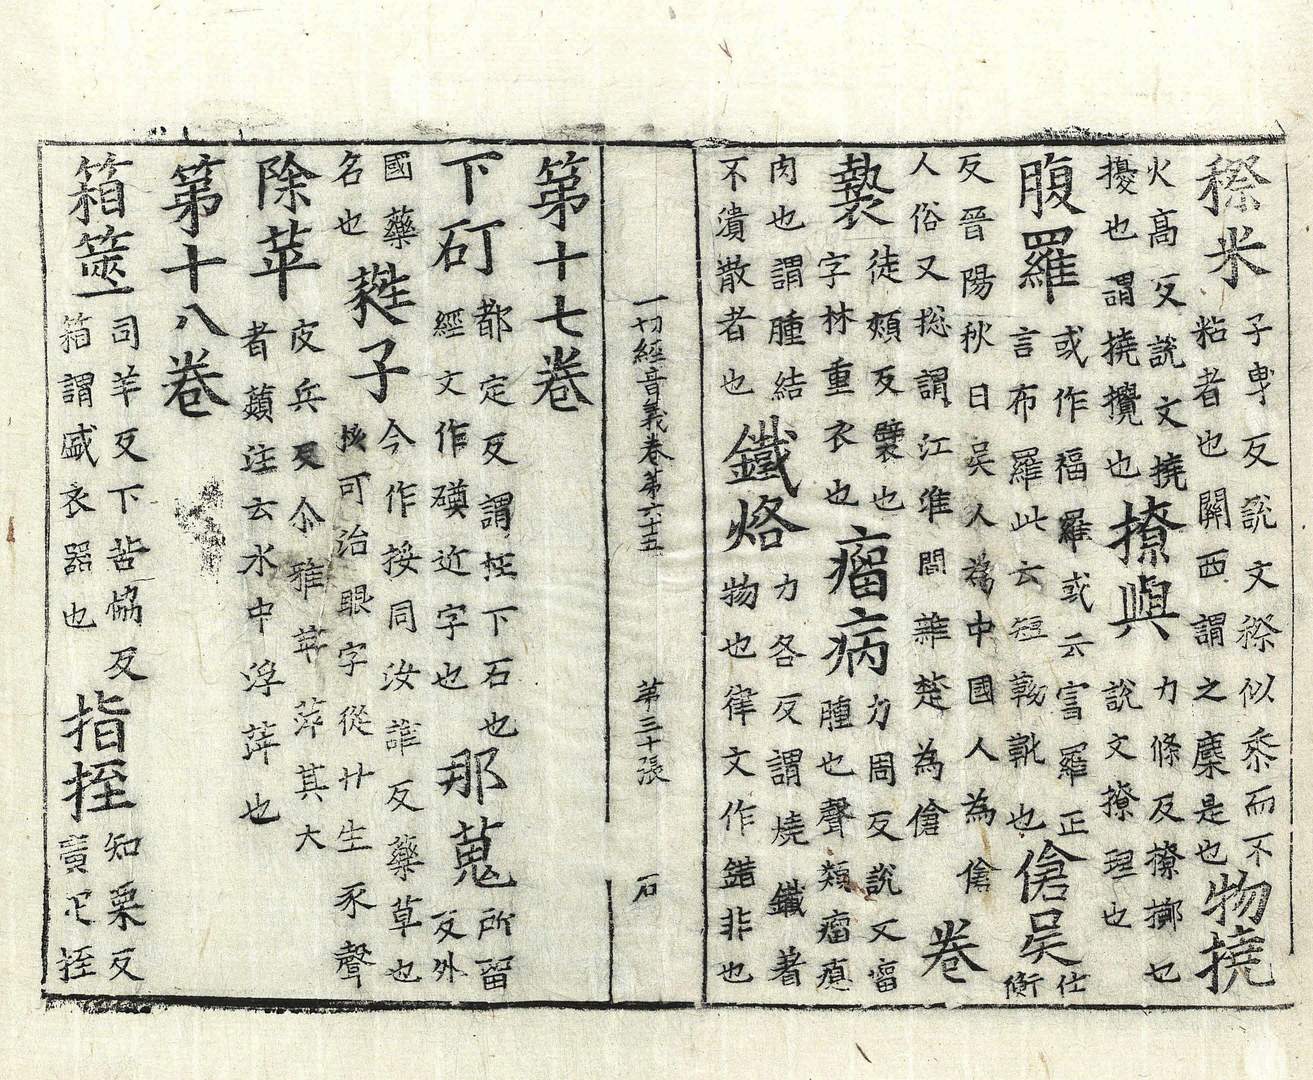 穄米 子曳反說文穄似黍而不
粘者也關西謂之穈是也 物撓
火高反說文撓
擾也謂撓攪也 撩與 力條反撩擲也
說文撩理也
腹羅 或作福羅或云富羅正
言布羅此云短靿靴也 傖吴 仕
衡
反晉陽秋曰吴人為中國人為傖
人俗又揔謂江淮間雜楚為傖 卷
褺 徒頰反襞也
字林重衣也 瘤病 力周反說文瘤
腫也聲類瘤瘜
肉也謂腫結
不潰散者也 鐵烙 力各反謂燒鐵著
物也律文作錯非也
一切經音義卷第六十五 第三十張 石
第十七卷
下矴 都定反謂柱下石也
經文作磸近字也 那蒐 所留
反外
國藥
名也 蕤子 今作桵同汝誰反藥草也
核可治眼字從廾生豕聲
除苹 皮兵反尒雅苹蓱其大
者蘋注云水中浮蓱也
第十八卷
箱篋 司羊反下苦恊反
箱謂盛衣器也 指挃 知栗反
廣疋挃